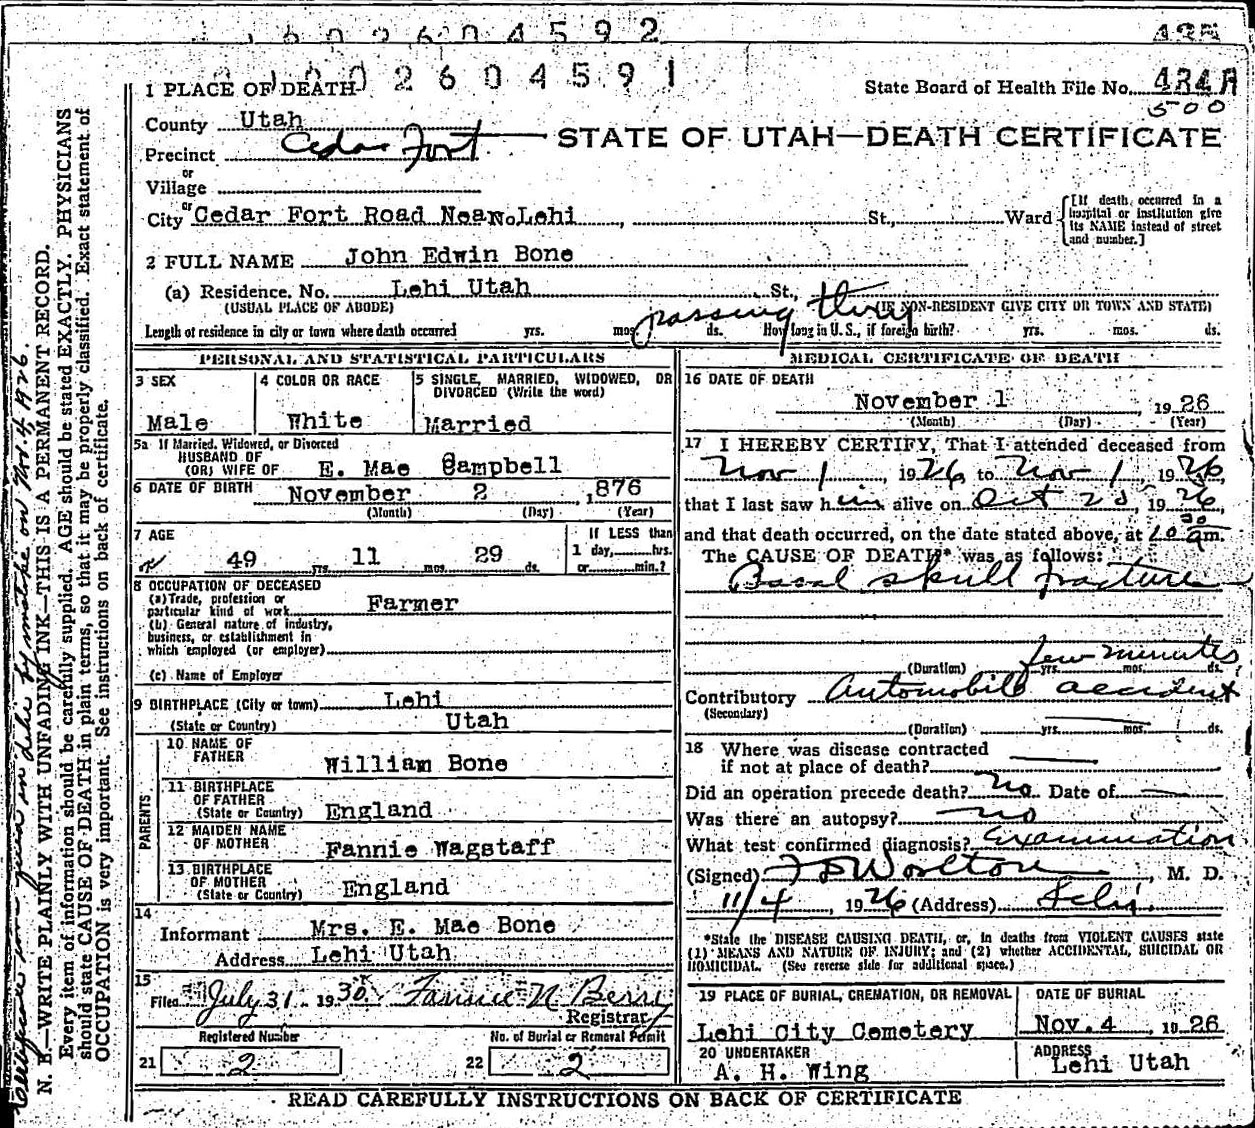 2 6 0 4 5 9 2
435
2 6 0 4 5 9 1
1 PLACE OF DEATH
State Board of Health File No. 434A
500
County Utah
STATE OF UTAH—DEATH CERTIFICATE
Precinct Cedar Fort
or
Village
or
City Cedar Fort Road Near Lehi No. St., Ward
[If death occurred in a hospital or institution give its NAME instead of street and number.]
2 FULL NAME John Edwin Bone
(a) Residence. No. Lehi Utah St.,
(USUAL PLACE OF ABODE) (IF NON-RESIDENT GIVE CITY OR TOWN AND STATE)
passing thru
Length of residence in city or town where death occurred yrs. mos. ds. How long in U. S., if foreign birth? yrs. mos. ds.
PERSONAL AND STATISTICAL PARTICULARS
3 SEX
Male
4 COLOR OR RACE
White
5 SINGLE, MARRIED, WIDOWED, OR DIVORCED (Write the word)
Married
5a If Married, Widowed, or Divorced
HUSBAND OF
(OR) WIFE OF E. Mae Campbell
6 DATE OF BIRTH November 2 , 876
(Month) (Day) (Year)
7 AGE
49 yrs. 11 mos. 29 ds.
If LESS than
1 day, hrs.
or min.?
8 OCCUPATION OF DECEASED
(a) Trade, profession or
particular kind of work Farmer
(b) General nature of industry,
business, or establishment in
which employed (or employer)
(c) Name of Employer
9 BIRTHPLACE (City or town) Lehi
(State or Country) Utah
PARENTS
10 NAME OF
FATHER William Bone
11 BIRTHPLACE
OF FATHER
(State or Country) England
12 MAIDEN NAME
OF MOTHER Fannie Wagstaff
13 BIRTHPLACE
OF MOTHER
(State or Country) England
14
Informant Mrs. E. Mae Bone
Address Lehi Utah
15
Filed July 31 1930 Fannie N Berry
Registrar
Registered Number No. of Burial or Removal Permit
21 2 22 2
MEDICAL CERTIFICATE OF DEATH
16 DATE OF DEATH
November 1 , 19 26
(Month) (Day) (Year)
17 I HEREBY CERTIFY, That I attended deceased from
Nov 1 1926 to Nov 1 1926,
that I last saw him alive on Oct , 1926
and that death occurred, on the date stated above, at 10 30 am.
The CAUSE OF DEATH* was as follows:
Basal skull fracture
few minutes
(Duration) yrs. mos. ds.
Contributory Automobile accident
(Secondary)
(Duration) yrs. mos. ds.
18 Where was disease contracted
if not at place of death?
Did an operation precede death? no Date of
Was there an autopsy? no
What test confirmed diagnosis? Examination
(Signed) Worlton, M. D.
11/4, 1926 (Address) Lehi.
*State the DISEASE CAUSING DEATH, or, in deaths from VIOLENT CAUSES state
(1) MEANS AND NATURE OF INJURY; and (2) whether ACCIDENTAL, SUICIDAL OR
HOMICIDAL. (See reverse side for additional space.)
19 PLACE OF BURIAL, CREMATION, OR REMOVAL
Lehi City Cemetery
DATE OF BURIAL
Nov. 4 , 19 26
20 UNDERTAKER
A. H. Wing
ADDRESS
Lehi Utah
READ CAREFULLY INSTRUCTIONS ON BACK OF CERTIFICATE
N. B.—WRITE PLAINLY WITH UNFADING INK—THIS IS A PERMANENT RECORD.
Every item of information should be carefully supplied. AGE should be stated EXACTLY. PHYSICIANS
should state CAUSE OF DEATH in plain terms, so that it may be properly classified. Exact statement of
OCCUPATION is very important. See instructions on back of certificate.
by mistake on Nov. 4, 1926.